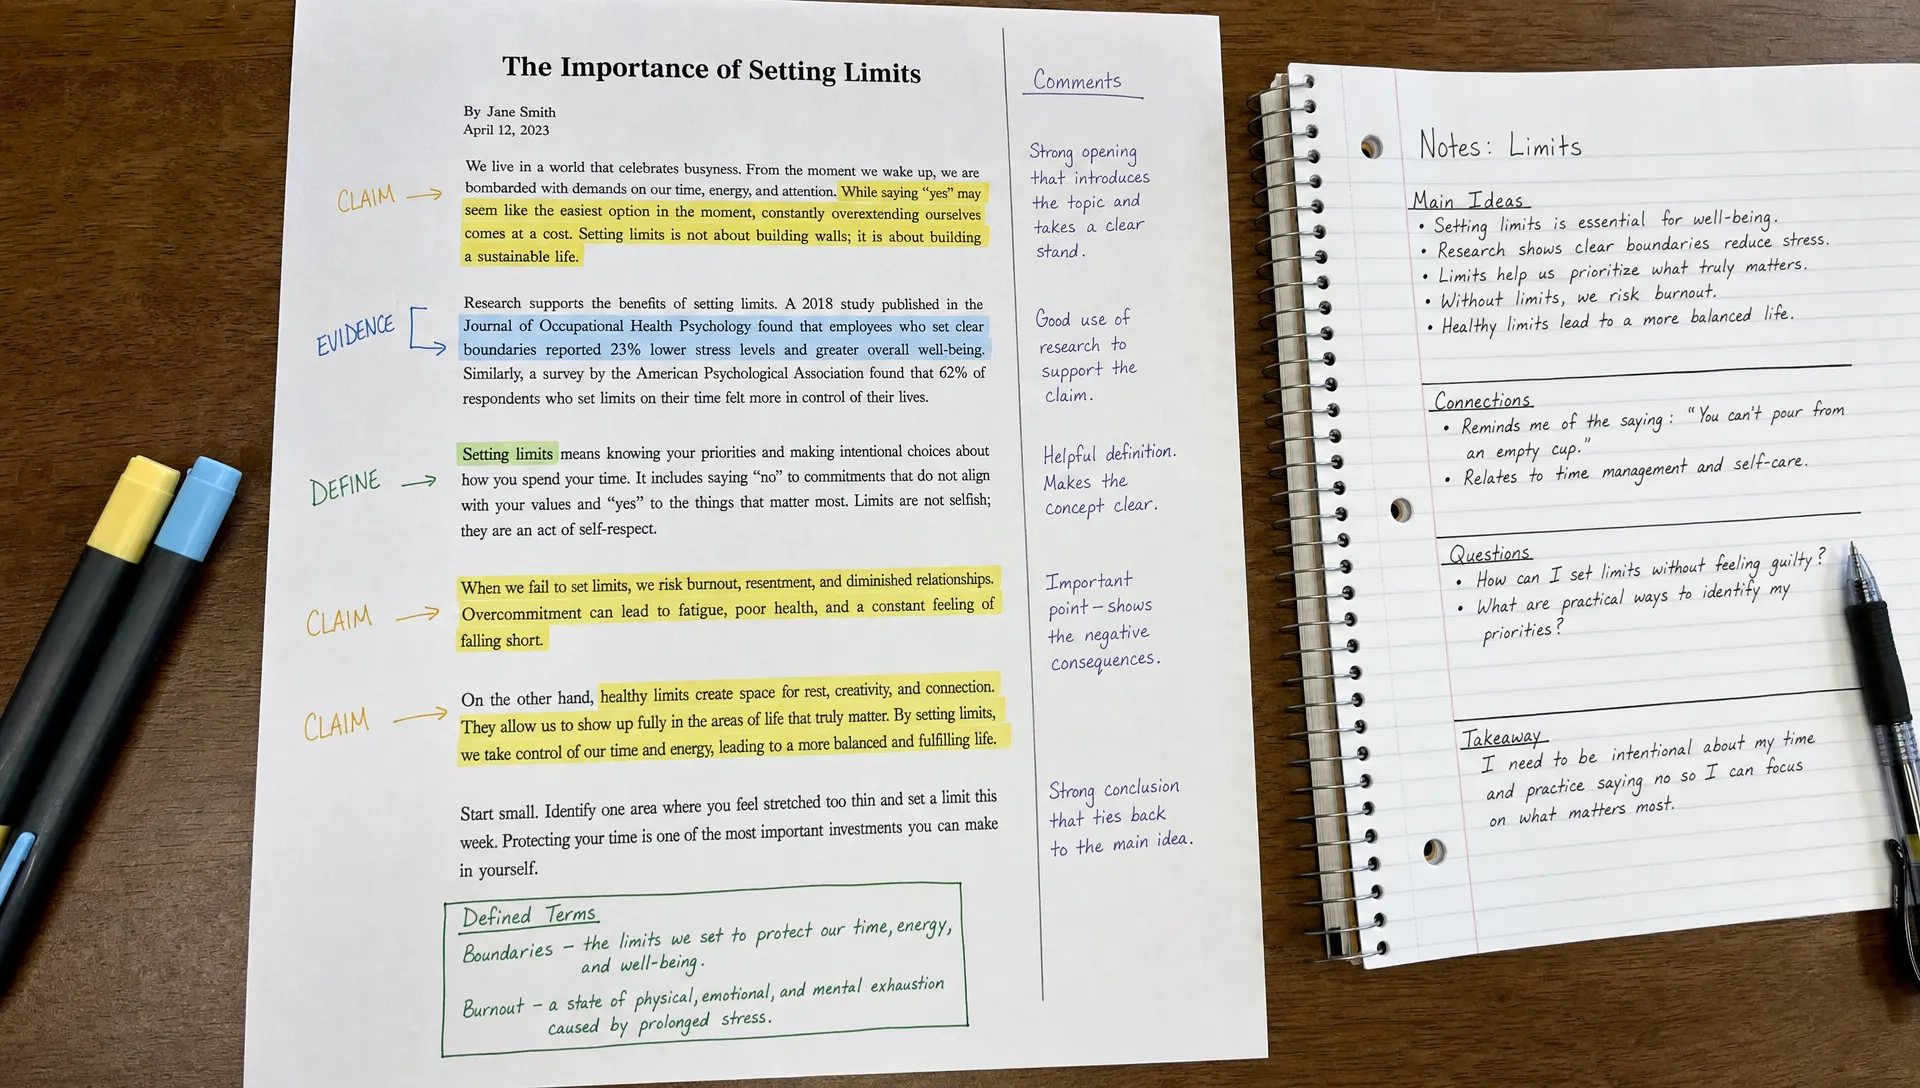 The Importance of Setting Limits
By Jane Smith
April 12, 2023
CLAIM
We live in a world that celebrates busyness. From the moment we wake up, we are
bombarded with demands on our time, energy, and attention. While saying “yes” may
seem like the easiest option in the moment, constantly overextending ourselves
comes at a cost. Setting limits is not about building walls; it is about building
a sustainable life.
EVIDENCE
Research supports the benefits of setting limits. A 2018 study published in the
Journal of Occupational Health Psychology found that employees who set clear
boundaries reported 23% lower stress levels and greater overall well-being.
Similarly, a survey by the American Psychological Association found that 62% of
respondents who set limits on their time felt more in control of their lives.
DEFINE
Setting limits means knowing your priorities and making intentional choices about
how you spend your time. It includes saying “no” to commitments that do not align
with your values and “yes” to the things that matter most. Limits are not selfish;
they are an act of self-respect.
CLAIM
When we fail to set limits, we risk burnout, resentment, and diminished relationships.
Overcommitment can lead to fatigue, poor health, and a constant feeling of
falling short.
CLAIM
On the other hand, healthy limits create space for rest, creativity, and connection.
They allow us to show up fully in the areas of life that truly matter. By setting limits,
we take control of our time and energy, leading to a more balanced and fulfilling life.
Start small. Identify one area where you feel stretched too thin and set a limit this
week. Protecting your time is one of the most important investments you can make
in yourself.
Defined Terms
Boundaries – the limits we set to protect our time, energy,
and well-being.
Burnout – a state of physical, emotional, and mental exhaustion
caused by prolonged stress.
Comments
Strong opening
that introduces
the topic and
takes a clear
stand.
Good use of
research to
support the
claim.
Helpful definition.
Makes the
concept clear.
Important
point – shows
the negative
consequences.
Strong conclusion
that ties back
to the main idea.
Notes: Limits
Main Ideas
• Setting limits is essential for well-being.
• Research shows clear boundaries reduce stress.
• Limits help us prioritize what truly matters.
• Without limits, we risk burnout.
• Healthy limits lead to a more balanced life.
Connections
• Reminds me of the saying: “You can't pour from
an empty cup.”
• Relates to time management and self-care.
Questions
• How can I set limits without feeling guilty?
• What are practical ways to identify my
priorities?
Takeaway
I need to be intentional about my time
and practice saying no so I can focus
on what matters most.